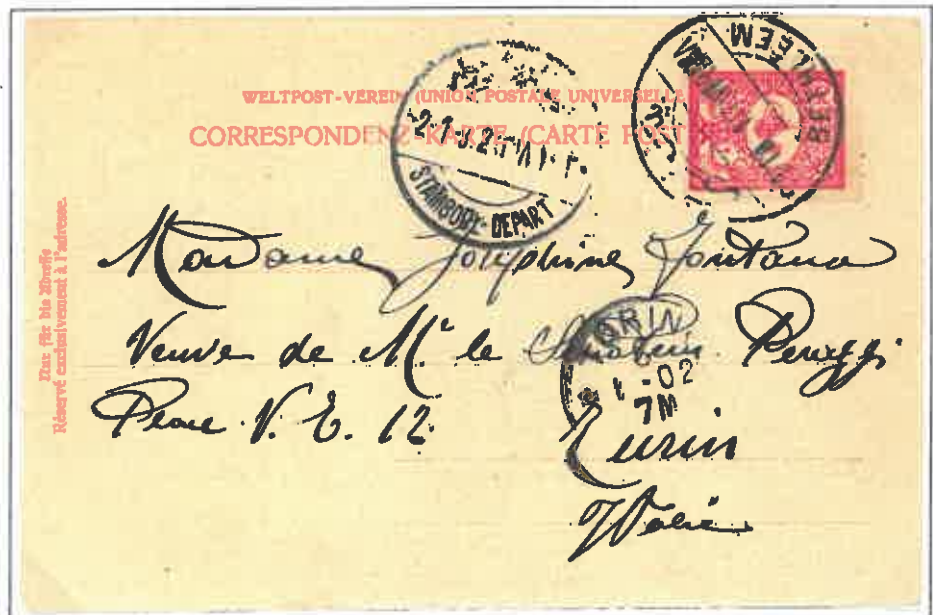 WELTPOST-VEREIN (UNION POSTALE UNIVERSELLE
CORRESPONDENZ-KARTE (CARTE POST
BETHLÉEM
STAMBOUL-DEPART
Nur für die Adresse
Réservé exclusivement à l'adresse.
Madame Joséphine Fontana
Veuve de Mr. le Peruzzi
Place V. E. 12
Turin
Italie
02
7M